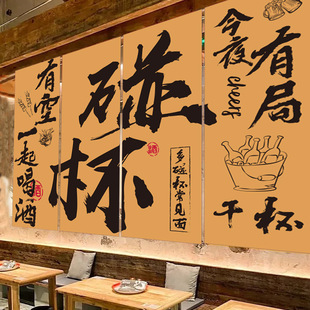 有空
一起喝酒
碰杯
多碰杯常见面
今夜
有局
cheers
干杯